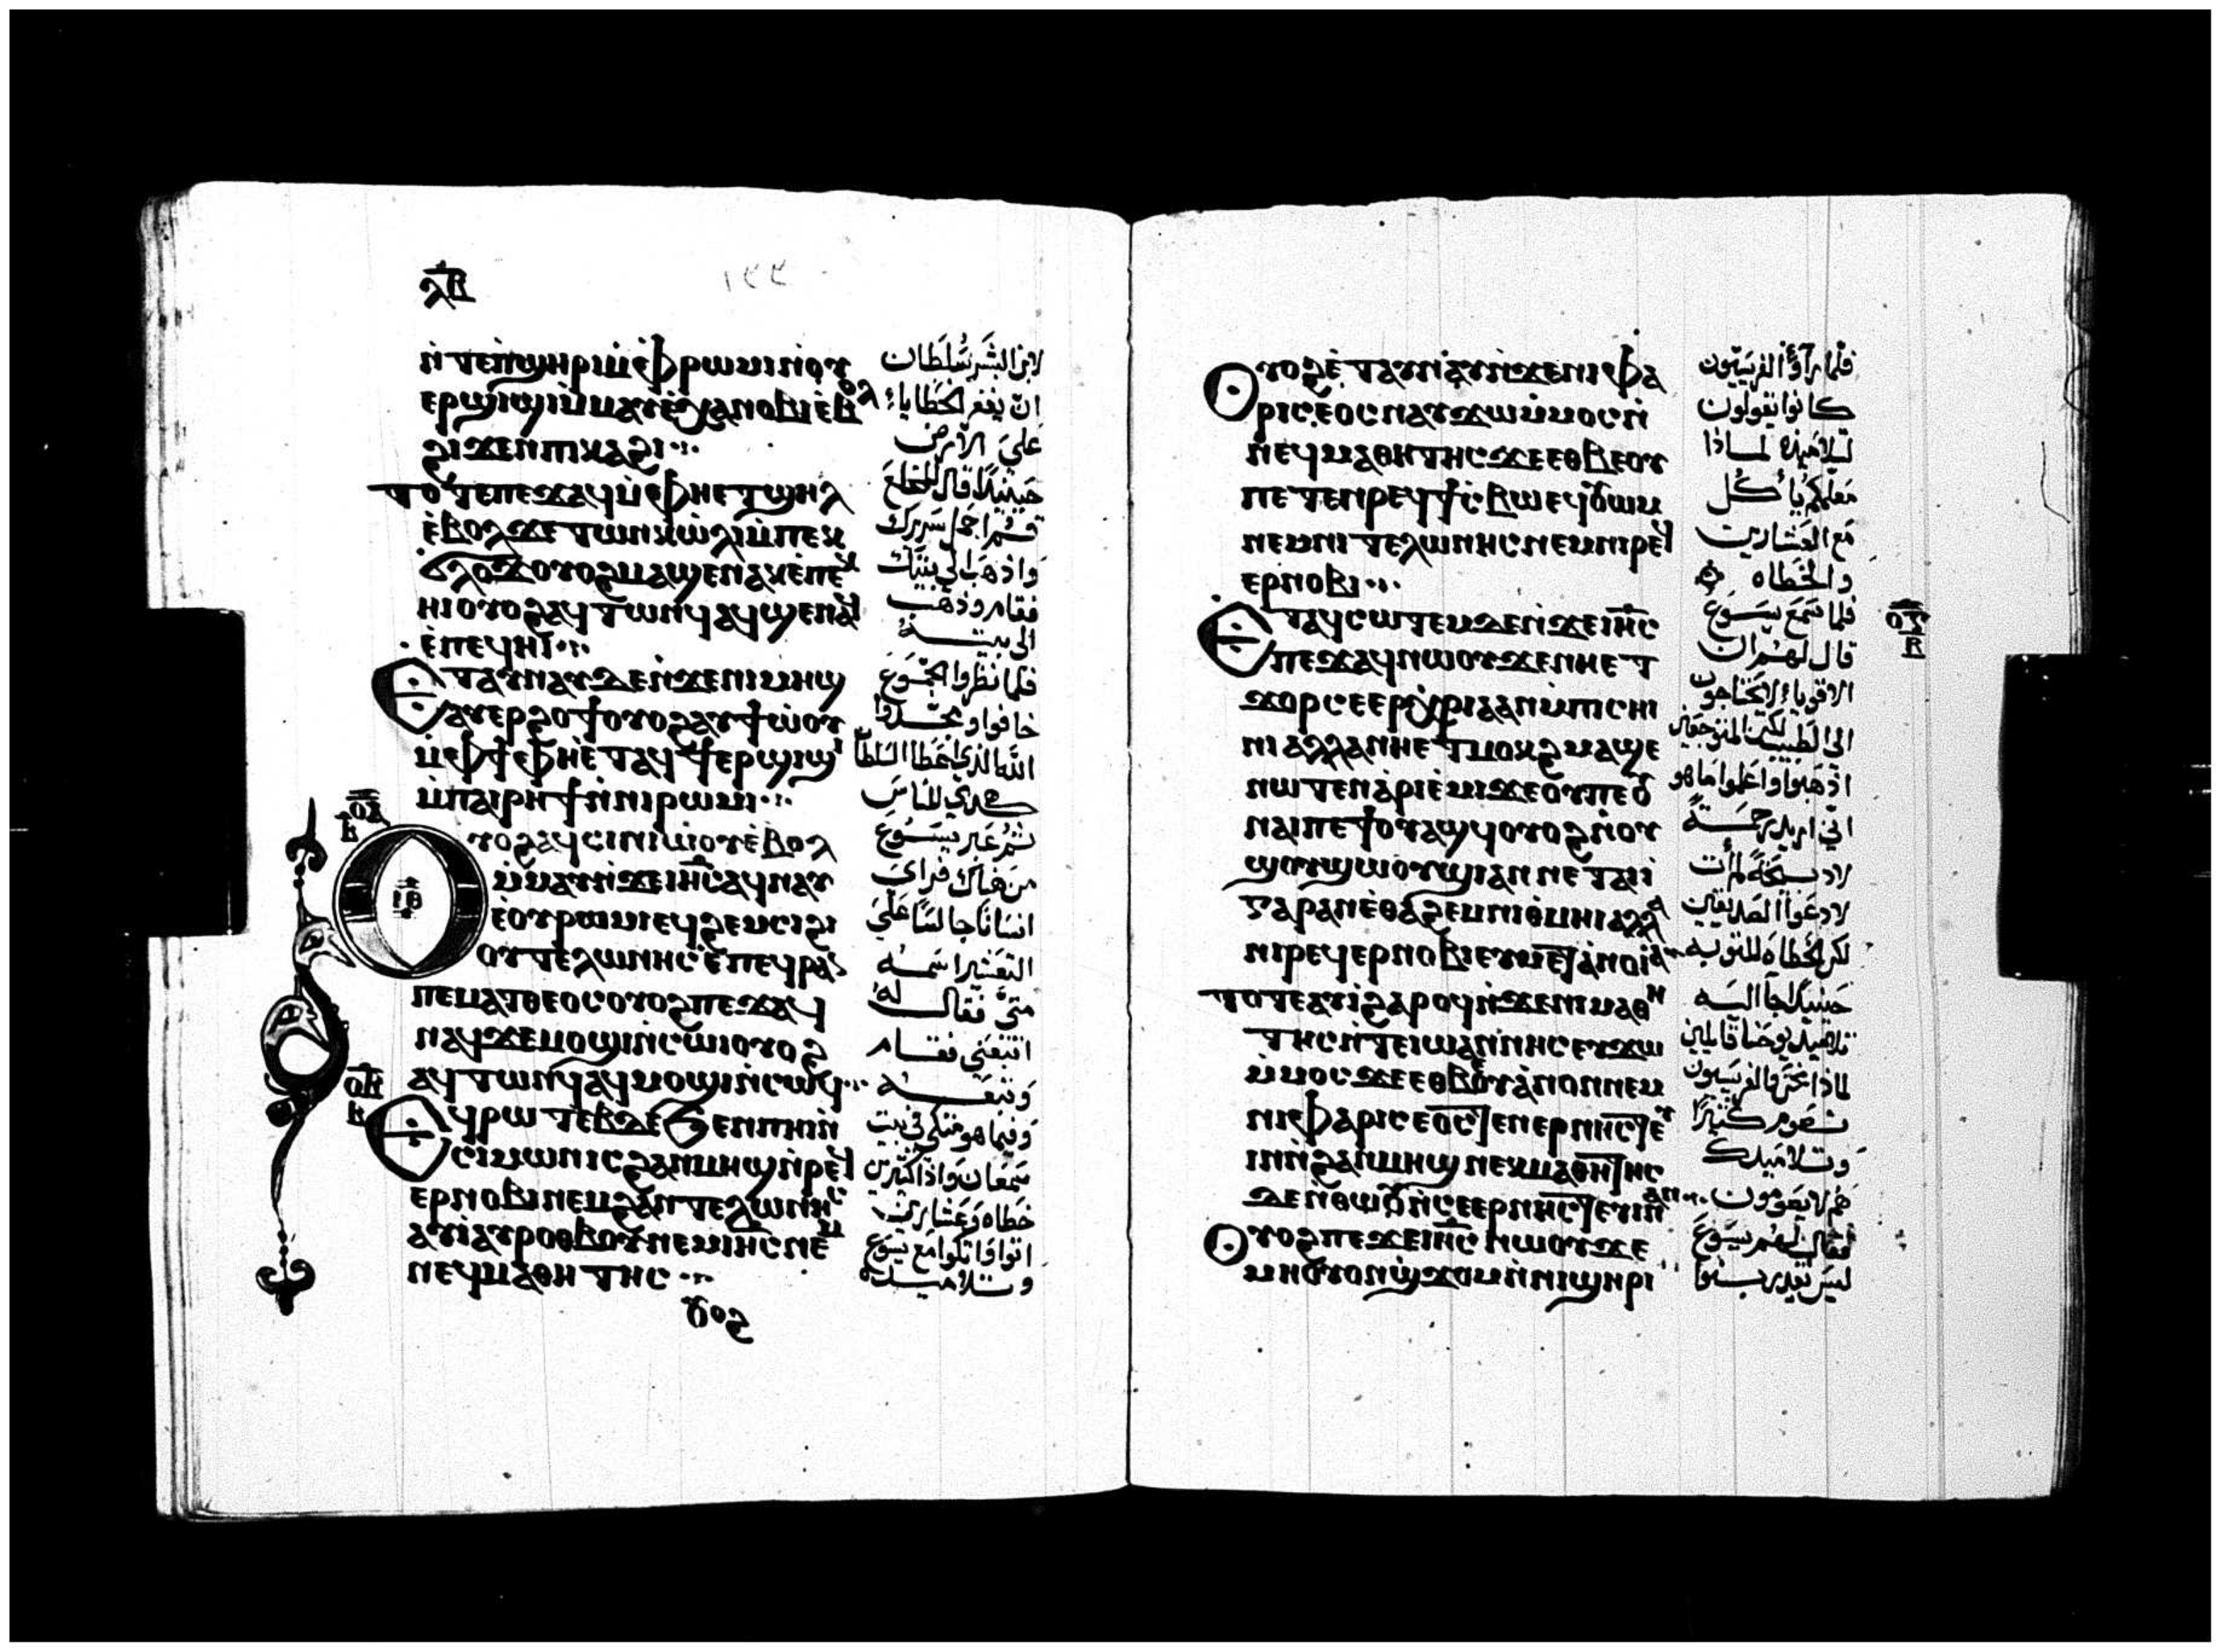 ⲗⲃ
١٢٢
ⲛ̇ⲧⲉⲡϣⲏⲣⲓ ⲙ̇ⲫⲣⲱⲙⲓ ⲛ̇ⲟⲩ
ⲉⲣϣⲓϣⲓ ⲙ̇ⲙⲁⲩ ⲉ̇ⲭⲁⲛⲟⲃⲓ ⲉ̇ⲃⲟⲗ
ϩⲓϫⲉⲛ ⲡⲓⲕⲁϩⲓ
ⲧⲟⲧⲉ ⲡⲉϫⲁϥ ⲙ̇ⲫⲏⲉⲧϣⲏⲗ
ⲉ̇ⲃⲟⲗ ϫⲉ ⲧⲱⲛⲕ ⲱ̇ⲗⲓ ⲙ̇ⲡⲉⲕ
ϭⲗⲟϫ ⲟⲩⲟϩ ⲙⲁϣⲉⲛⲁⲕ ⲉ̇ⲡⲉⲕ
ⲏⲓ ⲟⲩⲟϩ ⲁϥⲧⲱⲛϥ ⲁϥϣⲉⲛⲁϥ
ⲉ̇ⲡⲉϥⲏⲓ
ⲉⲧⲁⲩⲛⲁⲩ ⲇⲉ ⲛ̇ϫⲉⲛⲓⲙⲏϣ
ⲁⲩⲉⲣϩⲟϯ ⲟⲩⲟϩ ⲁⲩϯⲱ̇ⲟⲩ
ⲙ̇ⲫϯ ⲫⲏⲉ̇ⲧⲁϥϯⲉⲣϣⲓϣⲓ
ⲙ̇ⲡⲁⲓⲣⲏϯ ⲛ̇ⲛⲓⲣⲱⲙⲓ
ⲟⲩⲟϩ ⲁϥⲥⲓⲛⲓⲱ̇ⲟⲩ ⲉ̇ⲃⲟⲗ
ⲙ̇ⲙⲁⲩ ⲛ̇ϫⲉⲓⲏⲥ ⲁϥⲛⲁⲩ
ⲓⲑ
ⲉ̇ⲟⲩⲣⲱⲙⲓ ⲉϥϩⲉⲙⲥⲓ ϩⲓ
ⲟⲩⲧⲉⲗⲱⲛⲏⲥ ⲉ̇ⲡⲉϥⲣⲁⲛ
ⲡⲉ ⲙⲁⲧⲑⲉⲟⲥ ⲟⲩⲟϩ ⲡⲉϫⲁϥ
ⲛⲁϥ ϫⲉ ⲙⲟϣⲓ ⲛ̇ⲥⲱⲓ ⲟⲩⲟϩ
ⲁϥⲧⲱⲛϥ ⲁϥⲙⲟϣⲓ ⲛ̇ⲥⲱϥ
ⲟⲃ
ⲃ
ⲉϥⲣⲱⲧⲉⲃ ⲇⲉ ϧⲉⲛ ⲡⲏⲓ ⲛ̇
ⲥⲓⲙⲱⲛ ⲓⲥ ϩⲁⲛⲙⲏϣ ⲛ̇ⲣⲉϥ
ⲉⲣⲛⲟⲃⲓ ⲛⲉⲙ ϩⲁⲛⲧⲉⲗⲱⲛⲏⲥ
ⲁⲩⲓ̇ ⲁⲩⲣⲟⲑⲃⲟⲩ ⲛⲉⲙ ⲓⲏⲥ ⲛⲉⲙ
ⲛⲉϥⲙⲁⲑⲏⲧⲏⲥ
ⲟⲩⲟϩ
لابن البشر سلطان
ان يغفر الخطايا
على الارض
حينئذ قال للمخلع
قم احمل سريرك
واذهب الى بيتك
فقام وذهب
الى بيته
فلما نظروا الجموع
خافوا ومجدوا
الله الذي اعطا السلطان
هكذي للناس
ثم عبر يسوع
من هناك فراى
انسانا جالسا على
التعشير اسمه
متى فقال له
اتبعني فقام
وتبعه
وفيما هو متكي في بيت
سمعان واذا كثيرين
خطاه وعشارين
اتوا واتكوا مع يسوع
وتلاميذه
ⲟⲩⲟϩ ⲉ̇ⲧⲁⲩⲛⲁⲩ ⲛ̇ϫⲉⲛⲓⲫⲁ
ⲣⲓⲥⲉⲟⲥ ⲛⲁⲩϫⲱ ⲙ̇ⲙⲟⲥ ⲛ̇
ⲛⲉϥⲙⲁⲑⲏⲧⲏⲥ ϫⲉ ⲉⲑⲃⲉⲟⲩ
ⲡⲉⲧⲉⲛⲣⲉϥϯⲥⲃⲱ ⲉϥⲟⲩⲱⲙ
ⲛⲉⲙ ⲛⲓⲧⲉⲗⲱⲛⲏⲥ ⲛⲉⲙ ⲛⲓⲣⲉϥ
ⲉⲣⲛⲟⲃⲓ
ⲉ̇ⲧⲁϥⲥⲱⲧⲉⲙ ⲇⲉ ⲛ̇ϫⲉⲓⲏⲥ
ⲡⲉϫⲁϥ ⲛⲱⲟⲩ ϫⲉ ⲛⲏⲉⲧ
ϫⲟⲣ ⲥⲉⲉⲣⲭⲣⲓⲁ ⲁⲛ ⲙ̇ⲡⲓⲥⲏⲓ
ⲛⲓ ⲁⲗⲗⲁ ⲛⲏⲉⲧⲙⲟⲕϩ ⲙⲁϣⲉ
ⲛⲱⲧⲉⲛ ⲁⲣⲓⲉ̇ⲙⲓ ϫⲉ ⲟⲩⲡⲉ
ⲛⲁⲓ ⲡⲉϯⲟⲩⲁϣϥ ⲟⲩⲟϩ ⲛ̇ⲟⲩ
ϣⲟⲩϣⲱⲟⲩϣⲓ ⲁⲛ ⲛⲉⲧⲁⲓⲓ̇
ⲅⲁⲣ ⲁⲛ ⲉ̇ⲑⲁϩⲉⲙ ⲛⲓⲑⲙⲏⲓ ⲁⲗⲗⲁ
ⲛⲓⲣⲉϥⲉⲣⲛⲟⲃⲓ ⲉⲩⲙⲉⲧⲁⲛⲟⲓⲁ
ⲧⲟⲧⲉ ⲁⲩⲓ̇ ϩⲁⲣⲟϥ ⲛ̇ϫⲉⲛⲓⲙⲁⲑⲏ
ⲧⲏⲥ ⲛ̇ⲧⲉⲓⲱⲁⲛⲛⲏⲥ ⲉⲩϫⲱ
ⲙ̇ⲙⲟⲥ ϫⲉ ⲉⲑⲃⲉⲟⲩ ⲁⲛⲟⲛ ⲛⲉⲙ
ⲛⲓⲫⲁⲣⲓⲥⲉⲟⲥ ⲧⲉⲛⲉⲣⲛⲏⲥⲧⲉⲩ
ⲓⲛ ⲛ̇ϩⲁⲛⲙⲏϣ ⲛⲉⲕⲙⲁⲑⲏⲧⲏⲥ
ⲇⲉ ⲛ̇ⲑⲱⲟⲩ ⲛ̇ⲥⲉⲉⲣⲛⲏⲥⲧⲉⲩⲓⲛ ⲁⲛ
ⲟⲩⲟϩ ⲡⲉϫⲉ ⲓⲏⲥ ⲛⲱⲟⲩ ϫⲉ
ⲙⲏ ⲟⲩⲟⲛϣϫⲟⲙ ⲛ̇ⲛⲓϣⲏⲣⲓ
فلما رأوا الفريسيون
كانوا يقولون
لتلاميذه لماذا
معلمكم يأكل
مع العشارين
والخطاه
فلما سمع يسوع
قال لهم ان
الاقوياء لا يحتاجون
الى الطبيب لكن المتوجعين
اذهبوا واعلموا ما هو
اني اريد رحمة
لا ذبيحة لم أت
لادعوا الصديقين
لكن الخطاه للتوبه
حينئذ جا اليه
تلاميذ يوحنا قايلين
لماذا نحن والفريسيون
نصوم كثيرا
وتلاميذك
هم لا يصومون
فقال لهم يسوع
ليس يقدر بنوا
ⲃ